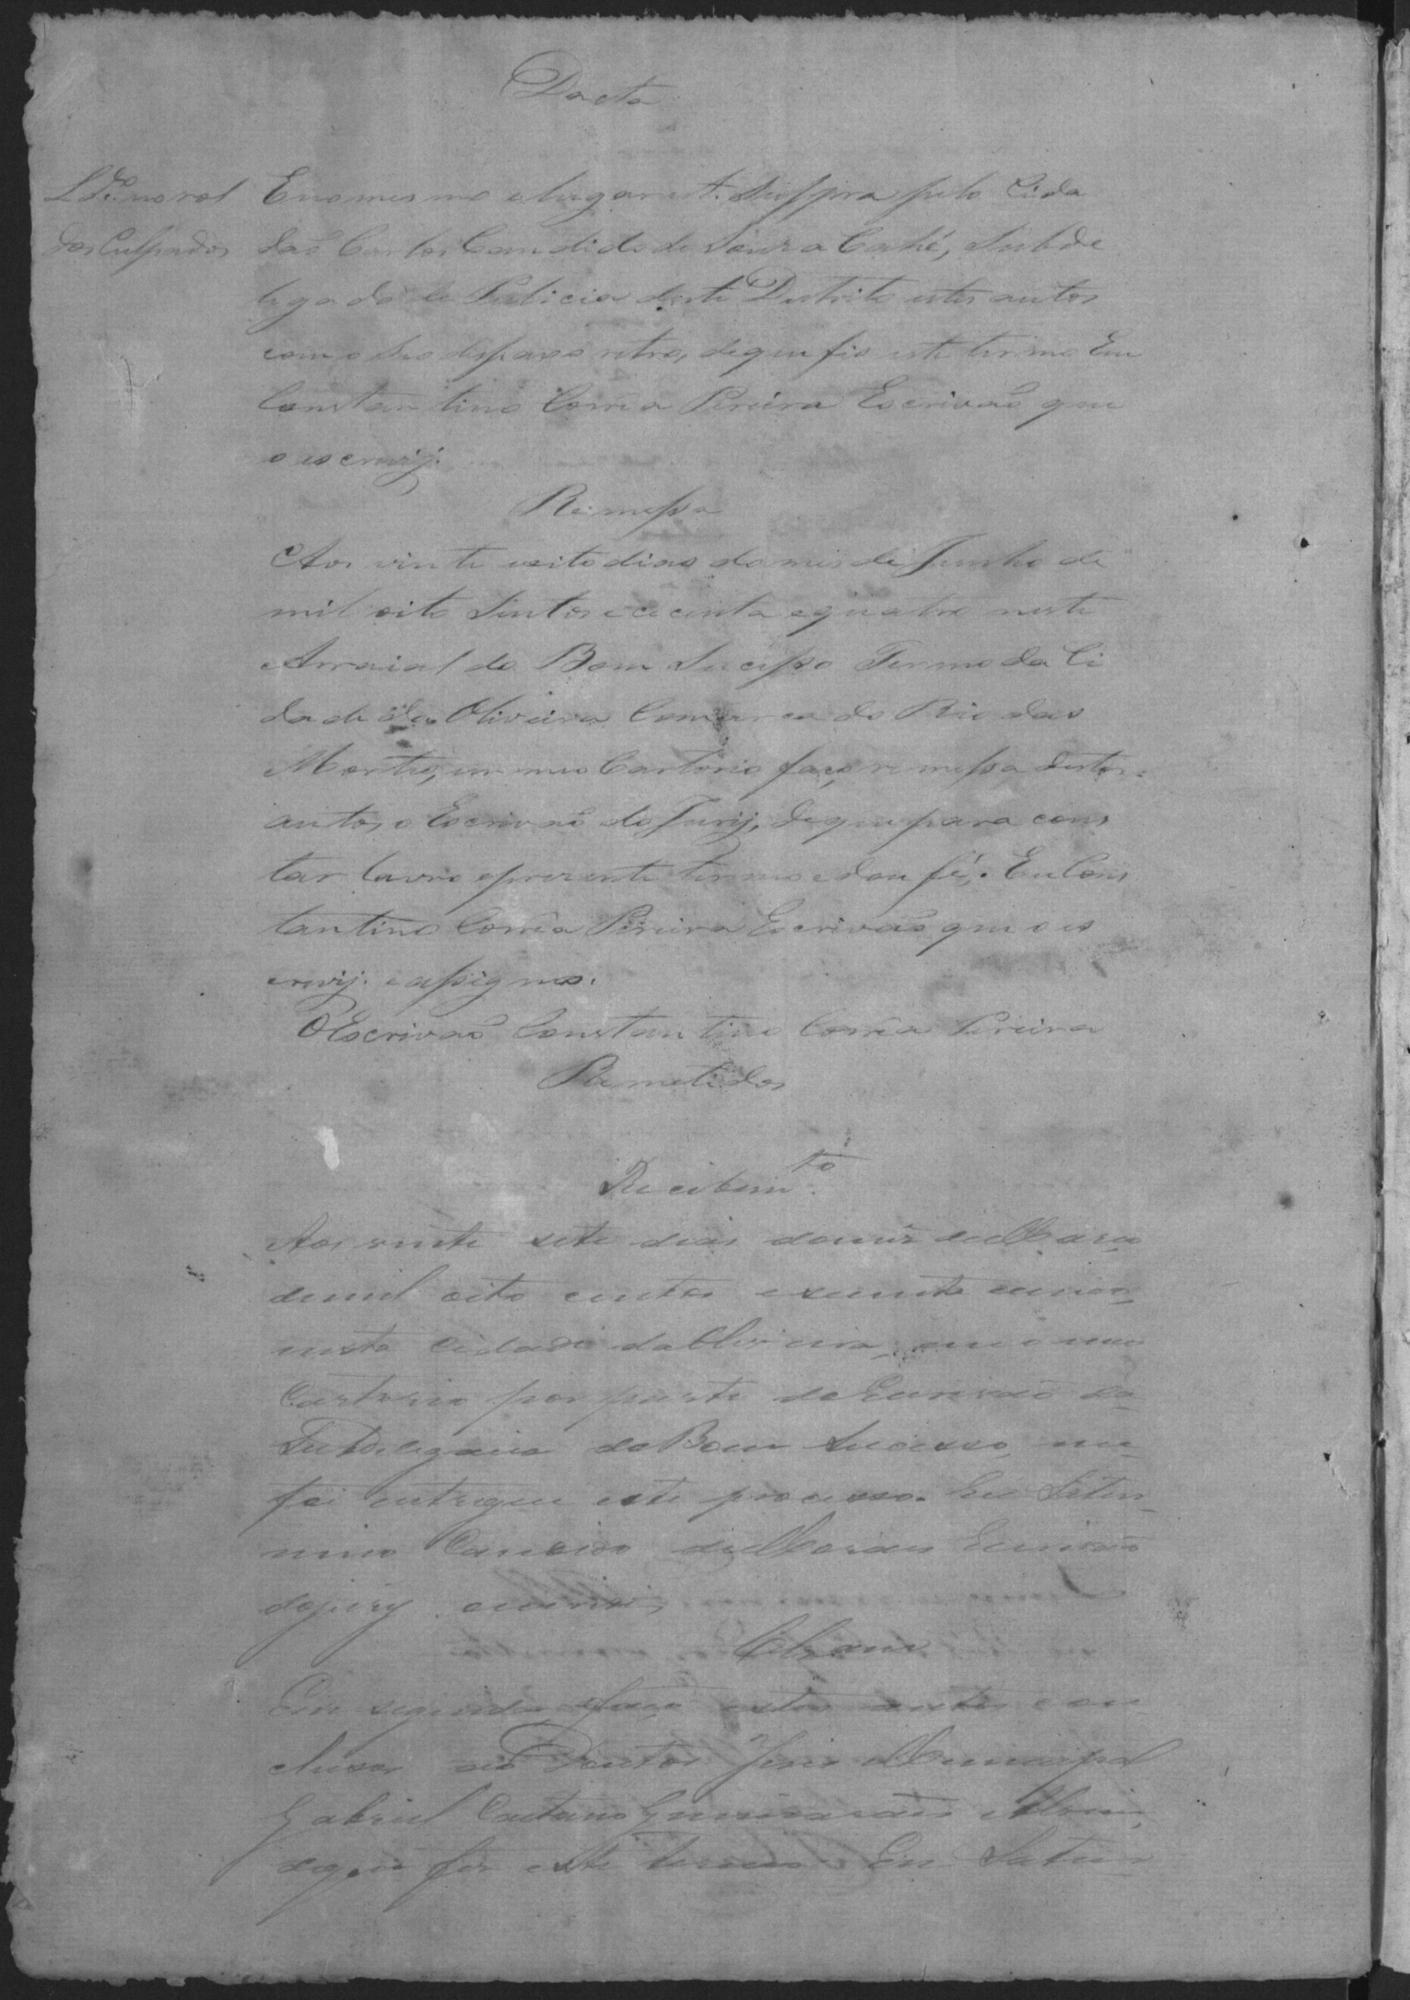 Dacta
L.do no rol
dos Culpados
E no mesmo e lugar et. Suppra pelo Cida
dão Carlos Candido de Souza Cahé, Subde
legado de Policia deste Destrito estes autos
com o seo despaxo retro, de que fis este termo Eu
Constantino Corrêa Pereira Escrivaõ que
o escrevij.
Remessa
Aos vinte e oito dias do mes de Junho de
mil oito sentos e cecenta e quatro neste
Arraial do Bom Sucesso Termo da Ci
dade de Oliveira Comarca do Rio das
Mortes, em meo Cartorio faço remessa destes
autos, o Escrivaõ do Jurij, de que para cons
tar lavro o prezente termo e dou fé. Eu Cons
tantino Corrêa Pereira Escrivaõ que o es
crevij. e assigno.
O Escrivaõ Constantino Corrêa Pereira
Remetidos
Recebim.to
Aos vinte sete dias do mez de Março
de mil oito centos e secenta e cinco
nesta Cidade da Oliveira, em o meu
Cartorio por parte do Escrivaõ da
Subdelegacia do Bom Sucesso, me
foi entregue este processo. Eu Satur
nino Candido de Moraes Escrivaõ
do jury escrivi,
Clzam
Em seguida faço estes autos con
clusos ao Doutor Juis Municipal
Gabriel Caetano Guimaraẽs
de que fis este termo Eu Satur